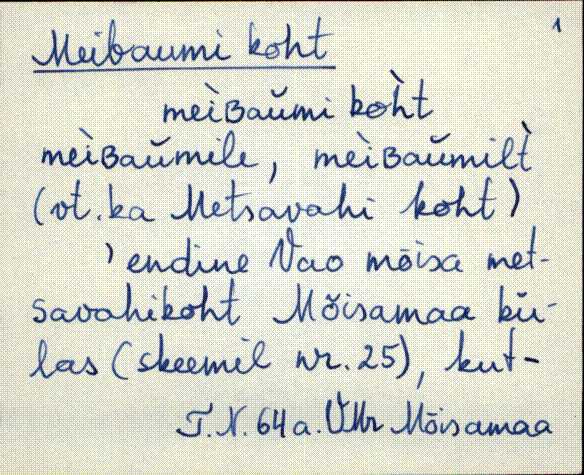 1
Meibaumi koht
meìʙaŭmi kòht
meìʙaŭmile, meìʙaŭmilt̀
(vt. ka Metsavahi koht)
' endine Vao mõisa met-
savahikoht Mõisamaa kü-
las (skeemil nr. 25), kut-
T.N. 64 a. VMr Mõisamaa